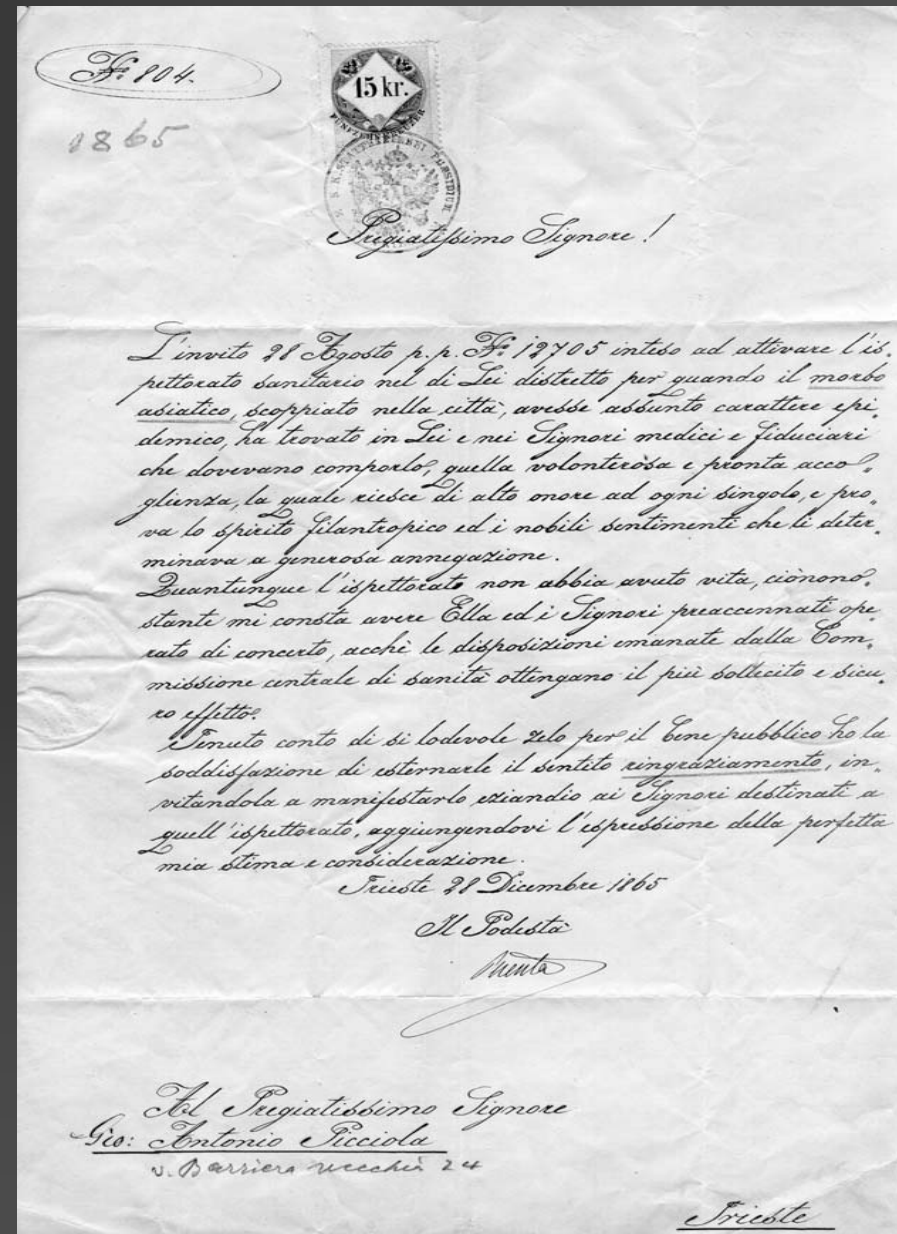 № 804.
1865
15 kr.
FÜNFZEHN KREUZER
K. K. STATTHALTEREI PRÆSIDIUM
Pregiatissimo Signore!
L'invito 28 Agosto p. p. № 12705 inteso ad attivare l'is„
pettorato sanitario nel di Lei distretto per quando il morbo
asiatico, scoppiato nella città, avesse assunto carattere epi„
demico, ha trovato in Lei e nei Signori medici e fiduciari
che dovevano comporlo, quella volonterosa e pronta acco„
glienza, la quale riesce di alto onore ad ogni singolo, e pro„
va lo spirito filantropico ed i nobili sentimenti che li deter„
minava a generosa annegazione.
Quantunque l'ispettorato non abbia avuto vita, ciònono„
stante mi consta avere Ella ed i Signori preaccennati ope
rato di concerto, acchè le disposizioni emanate dalla Com„
missione centrale di sanità ottengano il più sollecito e sicu„
ro effetto.
Tenuto conto di si lodevole zelo per il bene pubblico ho la
soddisfazione di esternarle il sentito ringraziamento, in„
vitandola a manifestarlo eziandio ai Signori destinati a
quell'ispettorato, aggiungendovi l'espressione della perfetta
mia stima e considerazione.
Trieste 28 Dicembre 1865
Il Podestà
Al Pregiatissimo Signore
Gio: Antonio Picciola
v. Barriera vecchia 24
Trieste